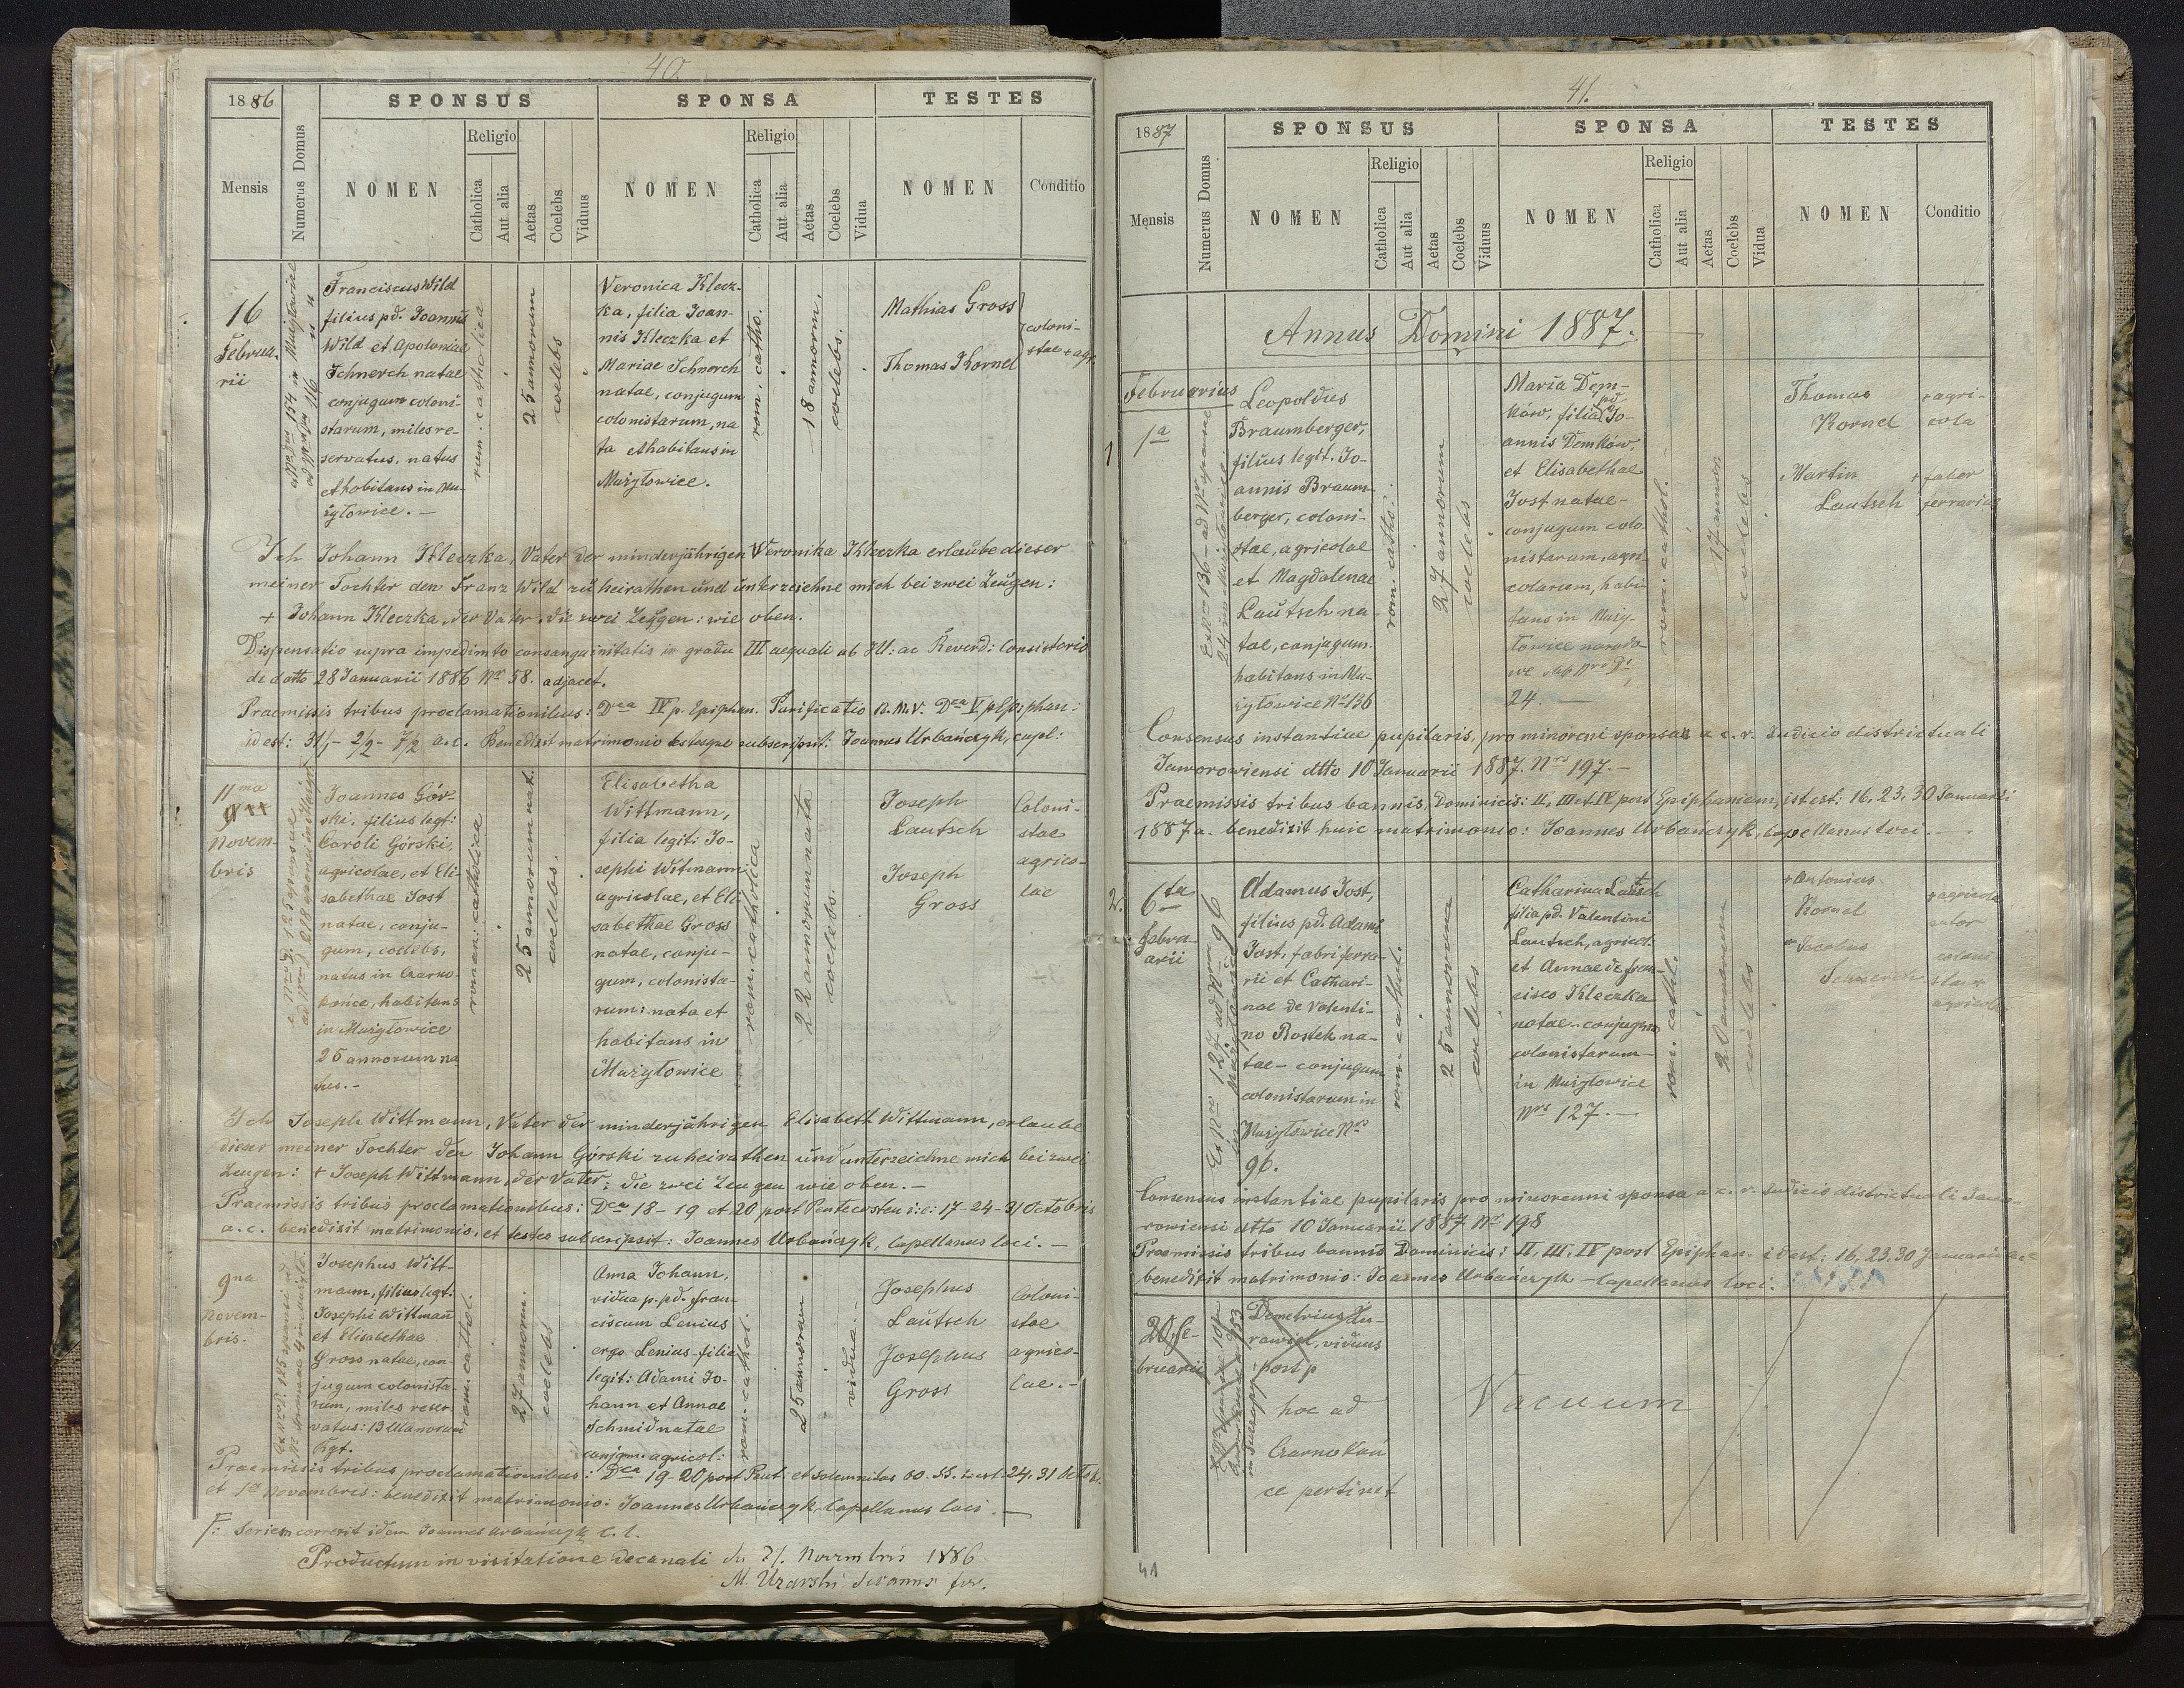 40.
1886
SPONSUS
SPONSA
TESTES
Mensis
Numerus Domus
NOMEN
Religio
Catholica
Aut alia
Aetas
Coelebs
Viduus
NOMEN
Religio
Catholica
Aut alia
Aetas
Coelebs
Vidua
NOMEN
Conditio
16
Februa-
rii
Franciscus Wild
filius pd. Joannis
Wild et Apoloniae
Schnerch natae
conjugum coloni-
starum, miles re-
servatus, natus
et habitans in Mu-
żyłowice. —
rom: catholica
25 annorum
coelebs
Veronica Klecz-
ka, filia Joan-
nis Kleczka et
Mariae Schnerch
natae, conjugum
colonistarum, na
ta et habitans in
Mużyłowice.
rom, catho.
18 annorm,
coelebs.
Mathias Gross
Thomas Kornel
coloni-
stae + agr.
Ich Johann Kleczka, Vater der minderjährigen Veronika Kleczka erlaube dieser
meiner Tochter den Franz Wild zu heirathen und unterzeichne mich bei zwei Zeugen:
+ Johann Kleczka, der Vater, die zwei Zeugen: wie oben.
Dispensatio supra impedimto consanguinitatis in gradu III aequali ab Ill: ac Reverd: Consistorio
de datto 28 Januarii 1886 Nr 58. adjacet.
Praemissis tribus proclamationibus: Dca IV p. Epiphan. Purificatio B.M.V. Dca V p Epiphan:
id est: 31/1 - 2/2 - 7/2 a.c. Benedixit matrimonio testesque subscripsit: Joannes Urbańczyk, capl:
11ma
Novem-
bris
Joannes Gór-
ski, filius legt:
Caroli Górski,
agricolae, et Eli-
sabethae Jost
natae, conju-
gum, coelebs,
natus in Czarno-
końce, habitans
in Mużyłowice
25 annorum na
tus. -
roman: catholica
25 annorum nat.
coelebs.
Elisabetha
Wittmann,
filia legit: Jo-
sephi Witmann
agricolae, et Eli-
sabethae Gross
natae, conju-
gum, colonista-
rum: nata et
habitans in
Mużyłowice
rom. catholica
22 annorum nata
coelebs.
Joseph
Lautsch
Joseph
Gross
Coloni-
stae
agrico-
lae
Ich Joseph Wittmann, Vater der minderjährigen Elisabeth Wittmann, erlaube
dieser meiner Tochter den Johann Górski zu heirathen und unterzeichne mich bei zwei
Zeugen: + Joseph Wittmann, der Vater; die zwei Zeugen wie oben. —
Praemissis tribus proclamationibus: Dca 18 - 19 et 20 post Pentecosten i:e: 17 - 24 - 31 Octobris
a.c. benedixit matrimonio, et testes subscripsit: Joannes Urbańczyk, Capellanus loci. —
9na
Novem-
bris.
Josephus Witt-
mann, filius legt:
Josephi Wittmann
et Elisabethae
Gross natae, con-
jugum colonista-
rum, miles reser-
vatus: 13 Ulanorum
Rgt.
rom. cathol.
27 annorm.
coelebs
Anna Johann,
vidua p. pd. Fran-
ciscum Lenius
ergo Lenius - filia
legit: Adami Jo-
hann et Annae
Schmid natae
conjgm. agricol:
rom. cathol.
25 annorum
vidua. -
Josephus
Lautsch
Josephus
Gross
Coloni-
stae
agrico-
lae. -
Praemissis tribus proclamationibus: Dca 19 - 20 post Pent: et solemnitas OO. SS. id est: 24, 31 Octob.
et 1a Novembris: benedixit matrimonio: Joannes Urbańczyk, Capellanus loci. —
F: Seriem correxit idem Joannes Urbańczyk c. l.
Productum in visitatione decanali
Novembris 1886
41.
1887
SPONSUS
SPONSA
TESTES
Mensis
Numerus Domus
NOMEN
Religio
Catholica
Aut alia
Aetas
Coelebs
Viduus
NOMEN
Religio
Catholica
Aut alia
Aetas
Coelebs
Vidua
NOMEN
Conditio
Annus Domini 1887.
Februarius
1
1a
Leopoldus
Braumberger,
filius legit. Jo-
annis Braum-
berger, coloni-
stae, agricolae
et Magdalenae
Lautsch na-
tae, conjugum
habitans in Mu-
żyłowice No 136
rom. catho.
27 annorum
coelebs
Maria Dem-
ków, filia pd Jo-
annis Demków,
et Elisabethae
Jost natae -
conjugum colo-
nistarum, agri-
colarum, habi-
tans in Muży-
łowice narodo-
we sub Nro Ds
24. —
rom. cathol.
17 annor
coelebs
Thomas
Kornel
Martin
Lautsch
+ agri-
cola
+ faber
ferrarius
Consensus instantiae pupilaris, pro minoreni sponsae a c. r. Judicio districtuali
Jaworowiensi dtto 10 Januarii 1887. Nrs 197. —
Praemissis tribus bannis, Dominicis: II, III et IV post Epiphaniam, ist est: 16, 23, 30 Januarii
1887 a. benedixit huic matrimonio: Joannes Urbańczyk, capellanus loci. —
2.
6ta
Febru-
arii
Ex Nro 127 ad Nrm 96
in Mużyłowice
Adamus Jost,
filius pd. Adami
Jost, fabri ferra-
rii et Cathari-
nae de Valenti-
no Rosteh na-
tae - conjugum
colonistarum in
Mużyłowice Nrs
96.
rom. cathol.
25 annorum
coelebs
Catharina Lautsch
filia pd. Valentini
Lautsch, agricol.
et Annae de Fran-
cisco Kleczka
natae - conjugum
colonistarum -
in Mużyłowice
Nrs 127. —
rom. cathl.
20 annorum
coelebs
+ Antonius
Kornel
+ Jacobus
Schnerch
+ agricola
sutor
coloni
sta +
agricola
Consensus instantiae pupilaris pro minorenni sponsa a c. r. Judicio districtuali Jawo-
rowiensi dtto 10 Januarii 1887. Nr 198
Praemissis tribus bannis Dominicis: II, III, IV post Epiphan. id est: 16, 23, 30 Januarii a.c.
benedixit matrimonio: Joannes Urbańczyk - Capellanus loci.
20. Fe-
bruarii
Demetrius Du-
viduus
post p
hoc ad
Czarnokoń
ce pertinet
Vacuum
41